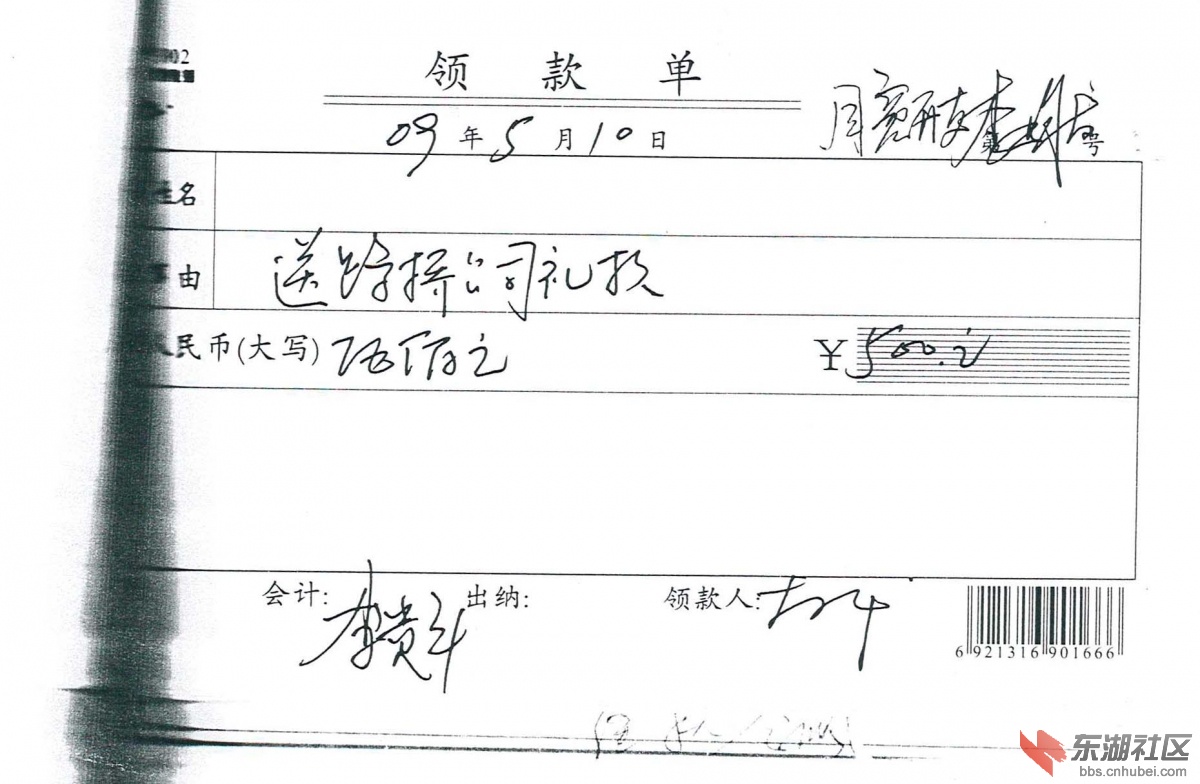 02
领 款 单
09年5月10日
姓名
由 送路桥公司礼款
民币(大写) 伍佰元 ¥500.元
会计: 李贵斗 出纳: 领款人:
6 921316 901666
东湖社区
bbs.cnhubei.com